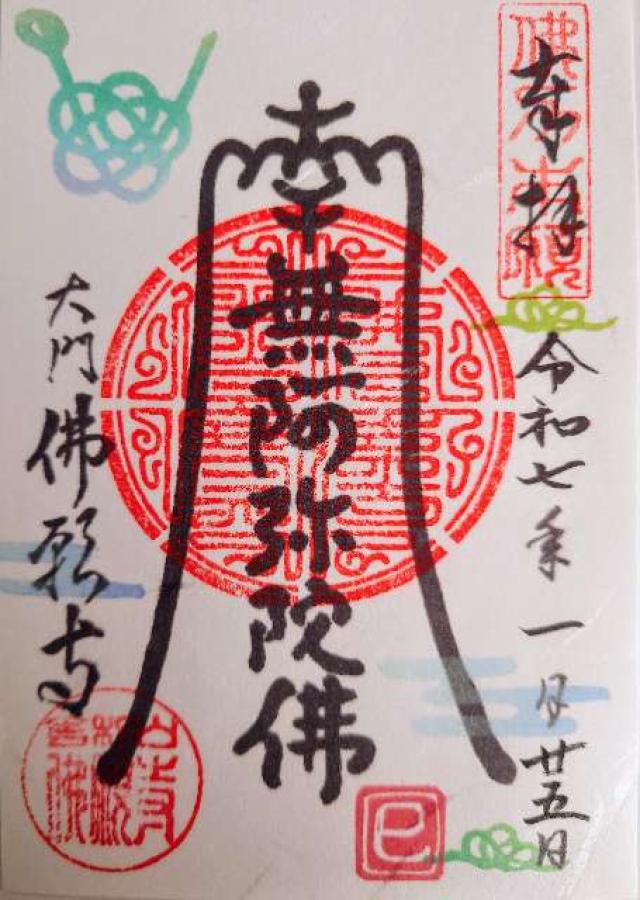 奉拝
令和七年一月廿五日
南無阿弥陀佛
大門 佛願寺
巳